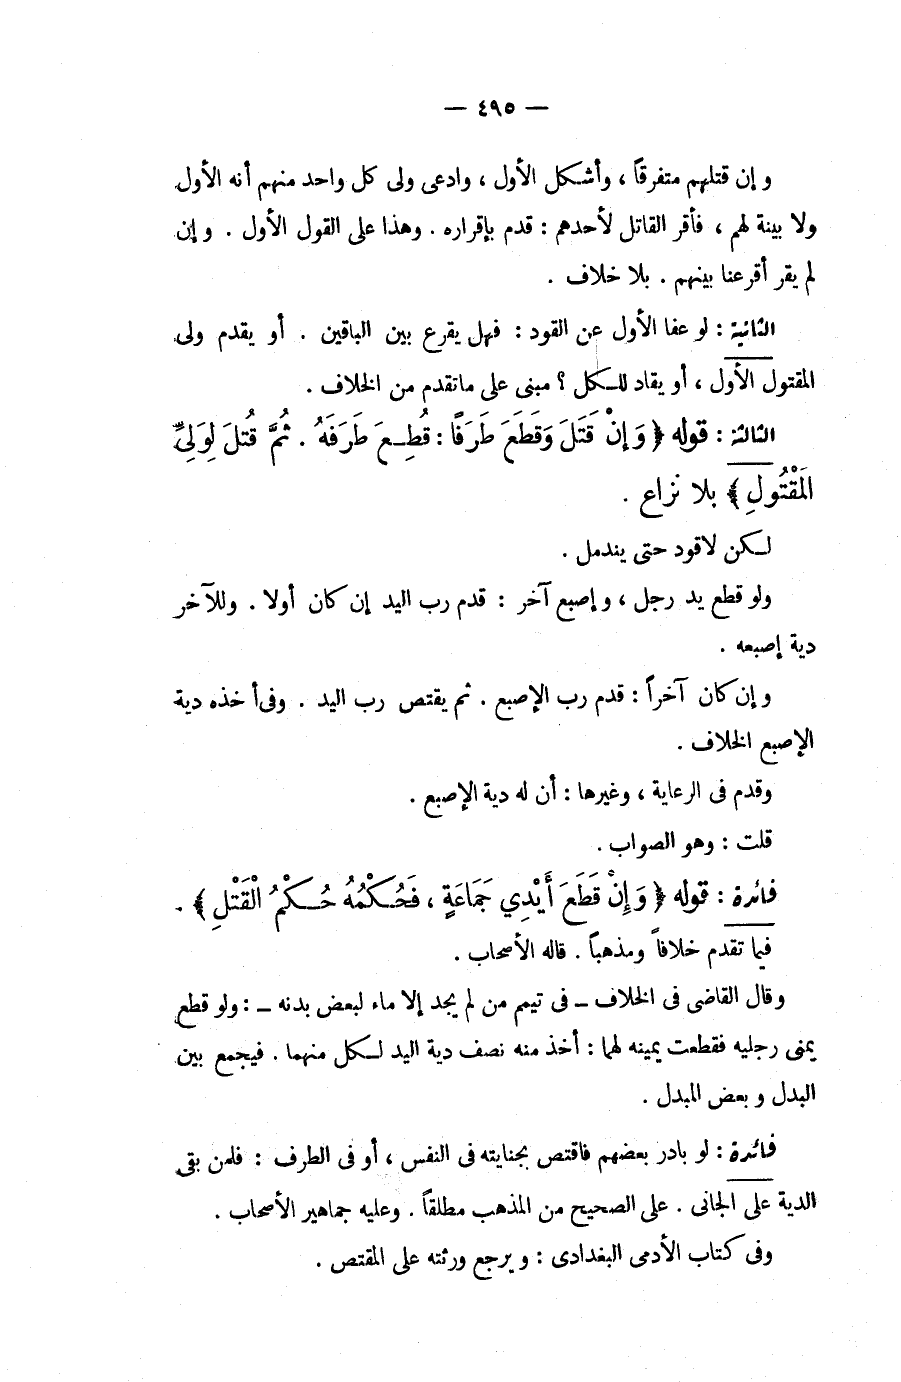 — ٤٩٥ —
وإن قتلهم متفرقاً ، وأشكل الأول ، وادعى ولى كل واحد منهم أنه الأول
ولا بينة لهم ، فأقر القاتل لأحدهم : قدم بإقراره . وهذا على القول الأول . وإن
لم يقر أقرعنا بينهم . بلا خلاف .
الثانية : لو عفا الأول عن القود : فهل يقرع بين الباقين . أو يقدم ولى
المقتول الأول ، أو يقاد للكل ؟ مبنى على ماتقدم من الخلاف .
الثالثة : قوله ﴿ وَإِنْ قَتَلَ وَقَطَعَ طَرَفًا : قُطِعَ طَرَفَهُ . ثُمَّ قُتِلَ لِوَلِيِّ
المَقْتُولِ ﴾ بلا نزاع .
لكن لاقود حتى يندمل .
ولو قطع يد رجل ، وإصبع آخر : قدم رب اليد إن كان أولا . وللآخر
دية إصبعه .
وإن كان آخراً : قدم رب الإصبع . ثم يقتص رب اليد . وفى أخذه دية
الإصبع الخلاف .
وقدم فى الرعاية ، وغيرها : أن له دية الإصبع .
قلت : وهو الصواب .
فائدة : قوله ﴿ وَإِنْ قَطَعَ أَيْدِي جَمَاعَةٍ ، فَحُكْمُهُ حُكْمُ الْقَتْلِ ﴾ .
فيما تقدم خلافاً ومذهباً . قاله الأصحاب .
وقال القاضى فى الخلاف – فى تيمم من لم يجد إلا ماء لبعض بدنه – : ولو قطع
يمنى رجليه فقطعت يمينه لهما : أخذ منه نصف دية اليد لكل منهما . فيجمع بين
البدل وبعض المبدل .
فائدة : لو بادر بعضهم فاقتص بجنايته فى النفس ، أو فى الطرف : فلمن بقى
الدية على الجانى . على الصحيح من المذهب مطلقاً . وعليه جماهير الأصحاب .
وفى كتاب الأدمى البغدادى : ويرجع ورثته على المقتص .